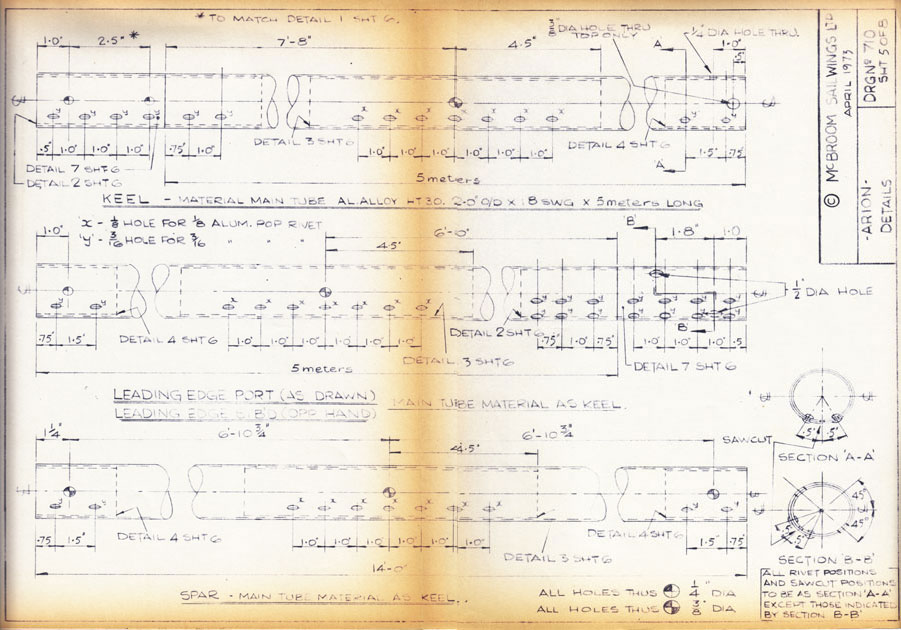 * TO MATCH DETAIL 1 SHT 6.
1.0" 2.5" *
7'-8"
4.5"
3/8" DIA HOLE THRU
TOP ONLY
1/4" DIA HOLE THRU.
1.0"
A
x x x x x x x
y y y y y y y y
.5" 1.0" 1.0" 1.0" .75" 1.0" 1.0" 1.0" 1.0" 1.0" 1.0" 1.0" 1.5" .75"
DETAIL 3 SHT 6
DETAIL 4 SHT 6
A
DETAIL 7 SHT 6
DETAIL 2 SHT 6
5 meters
KEEL - MATERIAL MAIN TUBE AL. ALLOY HT 30. 2.0" O/D x 18 SWG x 5 meters LONG
'x' - 1/8" HOLE FOR 1/8 ALUM. POP RIVET
'y' - 3/16 HOLE FOR 3/16 " " "
1.0"
6'-0"
4.5"
'B'
1'-8" 1.0
1/2" DIA HOLE
B
.75" 1.5"
DETAIL 4 SHT 6
1.0" 1.0" 1.0" 1.0" 1.0" 1.0"
DETAIL 2 SHT 6
DETAIL 3 SHT 6
.75" 1.0" .75"
1.0" 1.0" 1.0" .5
DETAIL 7 SHT 6
5 meters
LEADING EDGE PORT (AS DRAWN)
LEADING EDGE ST'B'D (OPP HAND)
MAIN TUBE MATERIAL AS KEEL.
1 1/4" 6'-10 3/4" 6'-10 3/4"
4.5"
.75 1.5"
DETAIL 4 SHT 6
1.0" 1.0" 1.0" 1.0" 1.0" 1.0"
DETAIL 3 SHT 6
DETAIL 4 SHT 6
1.5" .75"
14'-0"
SPAR - MAIN TUBE MATERIAL AS KEEL.
ALL HOLES THUS 1/4" DIA
ALL HOLES THUS 3/8" DIA
© McBROOM SAILWINGS LTD
APRIL 1973
DRG Nº 710
SHT 5 OF 8
-ARION-
DETAILS
SAWCUT
.5" .5"
SECTION 'A-A'
45°
45°
.5"
SECTION 'B-B'
ALL RIVET POSITIONS
AND SAWCUT POSITIONS
TO BE AS SECTION 'A-A'
EXCEPT THOSE INDICATED
BY SECTION B-B'